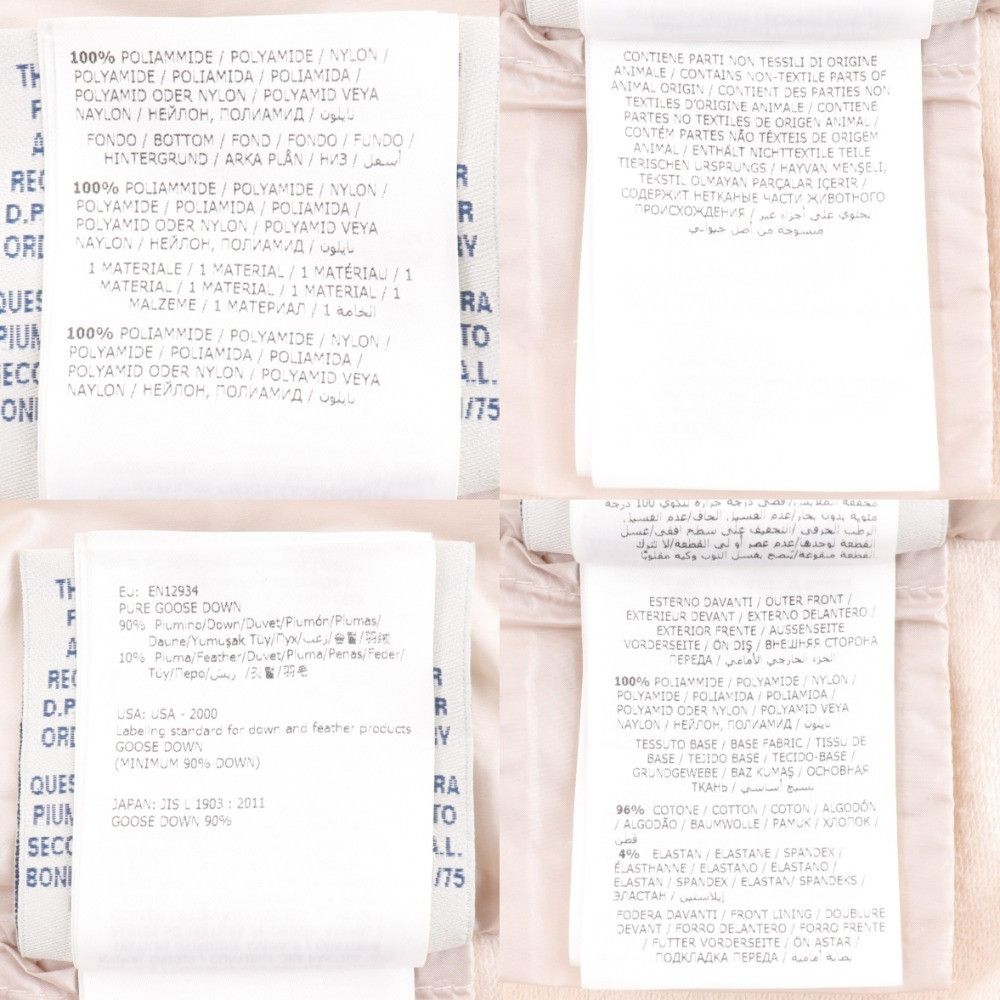 100% POLIAMMIDE / POLYAMIDE / NYLON /
POLYAMIDE / POLIAMIDA / POLIAMIDA /
POLYAMID ODER NYLON / POLYAMID VEYA
NAYLON / НЕЙЛОН, ПОЛИАМИД / نايلون
FONDO / BOTTOM / FOND / FONDO / FUNDO /
HINTERGRUND / ARKA PLÂN / НИЗ / أسفل
100% POLIAMMIDE / POLYAMIDE / NYLON /
POLYAMIDE / POLIAMIDA / POLIAMIDA /
POLYAMID ODER NYLON / POLYAMID VEYA
NAYLON / НЕЙЛОН, ПОЛИАМИД / نايلون
1 MATERIALE / 1 MATERIAL / 1 MATÉRIAU / 1
MATERIAL / 1 MATERIAL / 1 MATERIAL / 1
MALZEME / 1 МАТЕРИАЛ / 1 الخامة
100% POLIAMMIDE / POLYAMIDE / NYLON /
POLYAMIDE / POLIAMIDA / POLIAMIDA /
POLYAMID ODER NYLON / POLYAMID VEYA
NAYLON / НЕЙЛОН, ПОЛИАМИД / نايلون
D.P
ORD
QUES
PIUM
/75
CONTIENE PARTI NON TESSILI DI ORIGINE
ANIMALE / CONTAINS NON-TEXTILE PARTS OF
ANIMAL ORIGIN / CONTIENT DES PARTIES NON
TEXTILES D'ORIGINE ANIMALE / CONTIENE
PARTES NO TEXTILES DE ORIGEN ANIMAL /
CONTÉM PARTES NÃO TÊXTEIS DE ORIGEM
ANIMAL / ENTHÄLT NICHTTEXTILE TEILE
TIERISCHEN URSPRUNGS / HAYVAN MENŞELİ,
TEKSTİL OLMAYAN PARÇALAR İÇERİR /
СОДЕРЖИТ НЕТКАНЫЕ ЧАСТИ ЖИВОТНОГО
ПРОИСХОЖДЕНИЯ / يحتوي على أجزاء غير
منسوجة من أصل حيواني
EU: EN12934
PURE GOOSE DOWN
90% Piumino/Down/Duvet/Plumón/Plumas/
Daune/Yumuşak Tüy/Пух/زغب/
10% Piuma/Feather/Duvet/Pluma/Penas/Feder/
Tüy/Перо/ريش/
USA: USA - 2000
Labeling standard for down and feather products
GOOSE DOWN
(MINIMUM 90% DOWN)
JAPAN: JIS L 1903 : 2011
GOOSE DOWN 90%
REC
D.P
QUES
PIUM
SECO
BONI
/75
ESTERNO DAVANTI / OUTER FRONT /
EXTERIEUR DEVANT / EXTERNO DELANTERO /
EXTERIOR FRENTE / AUSSENSEITE
VORDERSEITE / ÖN DIŞ / ВНЕШНЯЯ СТОРОНА
ПЕРЕДА / الجزء الخارجي الأمامي
100% POLIAMMIDE / POLYAMIDE / NYLON /
POLYAMIDE / POLIAMIDA / POLIAMIDA /
POLYAMID ODER NYLON / POLYAMID VEYA
NAYLON / НЕЙЛОН, ПОЛИАМИД / نايلون
TESSUTO BASE / BASE FABRIC / TISSU DE
BASE / TEJIDO BASE / TECIDO-BASE /
GRUNDGEWEBE / BAZ KUMAŞ / ОСНОВНАЯ
ТКАНЬ / نسيج أساسي
96% COTONE / COTTON / COTON / ALGODÓN
/ ALGODÃO / BAUMWOLLE / PAMUK / ХЛОПОК /
قطن
4% ELASTAN / ELASTANE / SPANDEX /
ÉLASTHANNE / ELASTANO / ELASTANO /
ELASTAN / SPANDEX / ELASTAN/ SPANDEKS /
ЭЛАСТАН / إيلاستين
FODERA DAVANTI / FRONT LINING / DOUBLURE
DEVANT / FORRO DELANTERO / FORRO FRENTE
/ FUTTER VORDERSEITE / ÖN ASTAR /
ПОДКЛАДКА ПЕРЕДА / بطانة أمامية